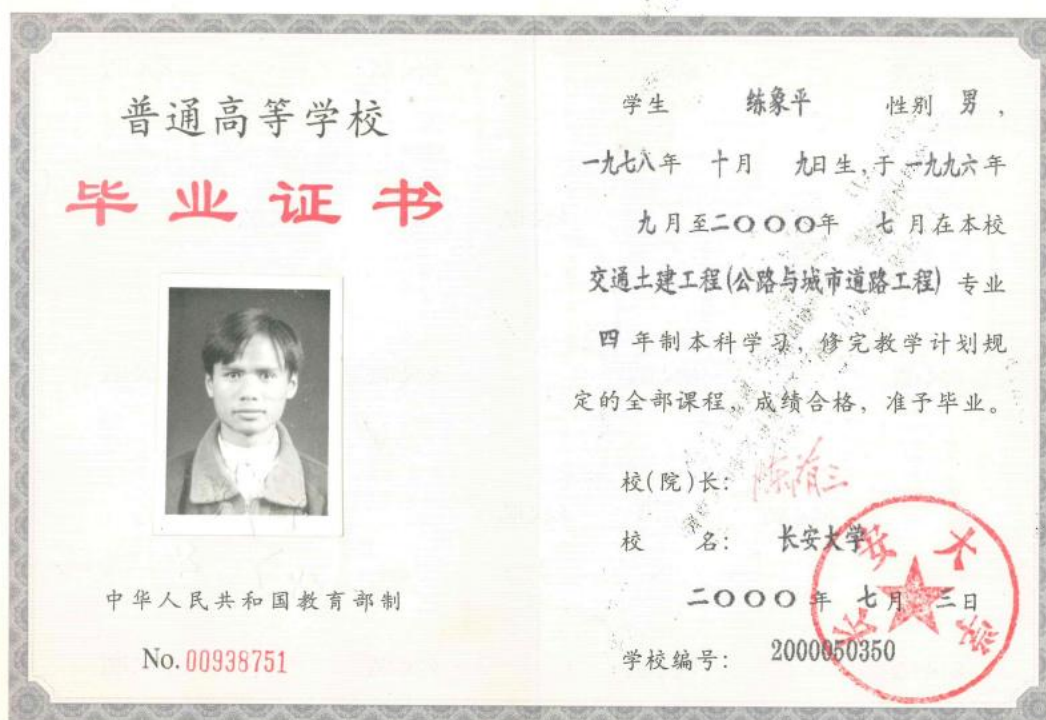 普通高等学校
毕业证书
中华人民共和国教育部制
No. 00938751
学生 练象平 性别 男，
一九七八年 十月 九日生，于一九九六年
九月至二〇〇〇年 七月在本校
交通土建工程(公路与城市道路工程) 专业
四年制本科学习，修完教学计划规
定的全部课程，成绩合格，准予毕业。
校(院)长：
校 名： 长安大学
二〇〇〇年 七月 三日
学校编号： 2000050350
长安大学